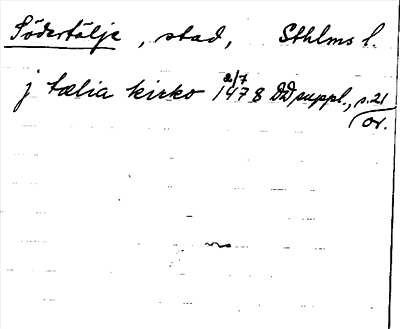 Södertälje, stad, Sthlms l.
j tælia kirko 2/7 1478 DD suppl., s. 21
or.